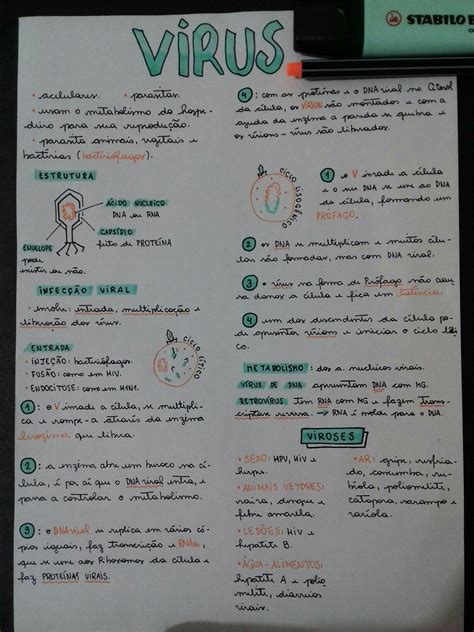 VÍRUS
STABILO
• acelulares. • parasitas.
• usam o metabolismo do hospe-
deiro para sua reprodução.
• parasita animais, vegetais e
bactérias (bacteriófagos).
ESTRUTURA
ÁCIDO NUCLEICO
DNA ou RNA
CAPSÍDIO
feito de PROTEÍNA
ENVELOPE
pode
existir ou não.
INFECÇÃO VIRAL
• envolve: entrada, multiplicação e
liberação dos vírus.
ENTRADA
• INJEÇÃO: bacteriófagos.
• FUSÃO: como em HIV.
• ENDOCITOSE: como em H1N1.
CICLO LÍTICO
1: o V invade a célula, se multipli-
ca e rompe-a através da enzima
lisozima que libera.
2: a enzima abre um buraco na cé-
lula, é por aí que o DNA viral entra, e
passa a controlar o metabolismo.
3: o DNA viral se replica em vários có-
pias iguais, faz transcrição e RNAm,
que se une aos Ribossomos da célula e
faz PROTEÍNAS VIRAIS.
4: com as proteínas e o DNA viral no Citosol
da célula, os VÍRION são montados e com a
ajuda da enzima a parede se quebra e
os vírions - vírus são liberados.
CICLO LISOGÊNICO
1 o V invade a célula
e o seu DNA se une ao DNA
da célula, formando um
PRÓFAGO.
2 os DNA se multiplicam e muitas célu-
las são formadas, mas com DNA viral.
3 o vírus na forma de Prófago não cau-
sa danos a célula e fica em latência.
4 um dos descendentes da célula po-
de apresentar vírions e iniciar o ciclo líti-
co.
METABOLISMO: dos a. nucleicos virais.
VÍRUS DE DNA apresentam DNA com MG.
RETROVÍRUS têm RNA com MG e fazem Trans-
criptase reversa → RNA é molde para o DNA.
VIROSES
• SEXO: HPV, HIV e
herpes.
• ANIMAIS VETORES:
raiva, dengue e
febre amarela.
• LESÕES: HIV e
hepatite B.
• ÁGUA - ALIMENTOS:
hepatite A e polio
melite, diarreias
virais.
• AR: gripe, resfria-
do, caxumba, ru-
béola, poliomelite,
catapora, sarampo e
varíola.